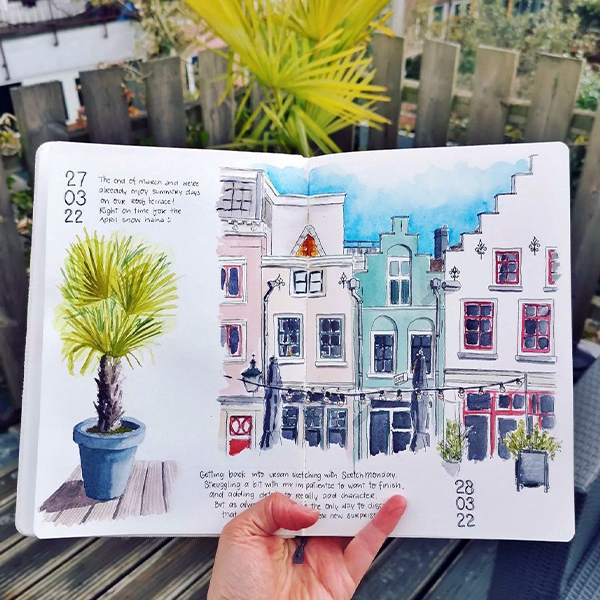 27
03
22
The end of March and we're
already enjoy summery days
on our roof terrace!
Right on time for the
April snow haha :)
Getting back into urban sketching with Sketch Monday.
Struggling a bit with my impatience to want to finish,
and adding to really add character.
But as the only way to
that new surprise
28
03
22